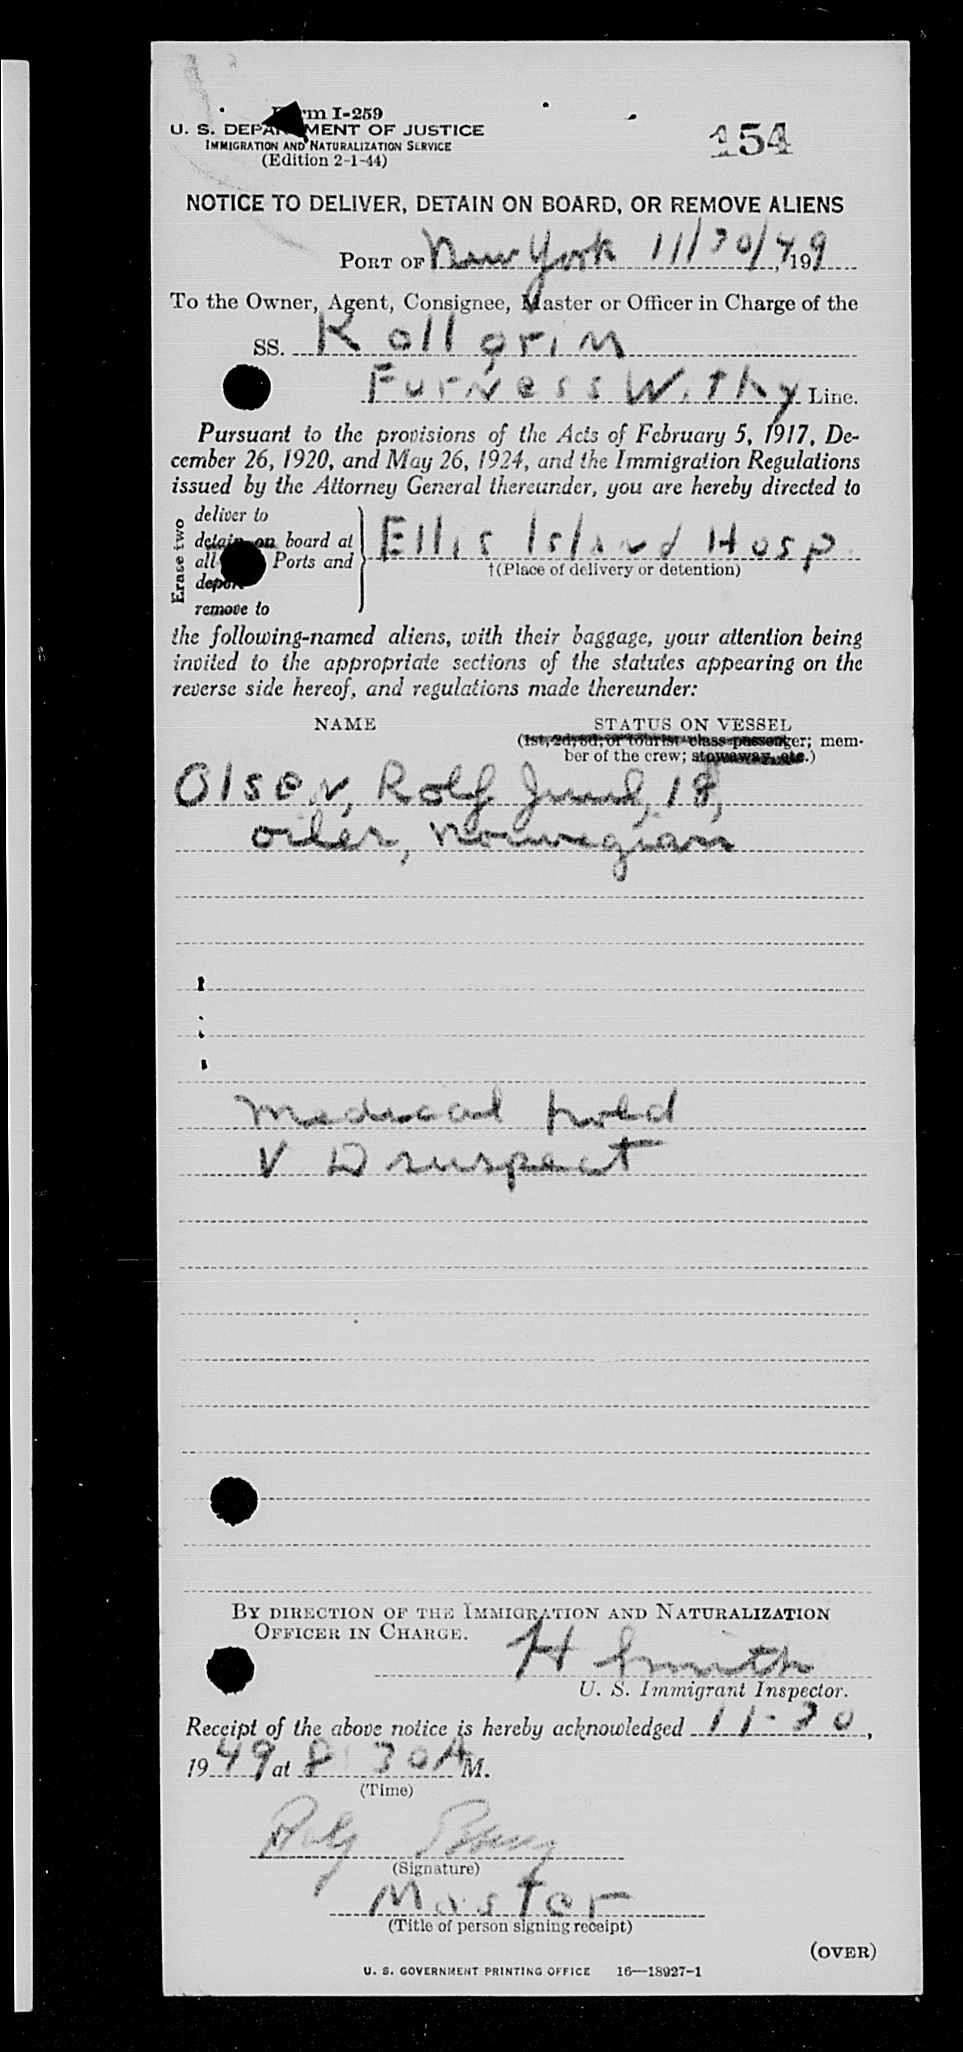 Form I-259
U. S. DEPARTMENT OF JUSTICE
IMMIGRATION AND NATURALIZATION SERVICE
(Edition 2-1-44)
154
NOTICE TO DELIVER, DETAIN ON BOARD, OR REMOVE ALIENS
PORT OF New York 11/30/49, 199
To the Owner, Agent, Consignee, Master or Officer in Charge of the
SS. Kollgrim
Furness Withy Line.
Pursuant to the provisions of the Acts of February 5, 1917, De-
cember 26, 1920, and May 26, 1924, and the Immigration Regulations
issued by the Attorney General thereunder, you are hereby directed to
Erase two
deliver to
detain on board at
all Ports and
deport
remove to
Ellis Island Hosp.
†(Place of delivery or detention)
the following-named aliens, with their baggage, your attention being
invited to the appropriate sections of the statutes appearing on the
reverse side hereof, and regulations made thereunder:
NAME STATUS ON VESSEL
(1st, 2d, 3d, or tourist class passenger; mem-
ber of the crew; stowaway, etc.)
Olsen, Rolf Juul, 18,
oiler, Norwegian
Medical hold
V D suspect
BY DIRECTION OF THE IMMIGRATION AND NATURALIZATION
OFFICER IN CHARGE.
H Smith
U. S. Immigrant Inspector.
Receipt of the above notice is hereby acknowledged 11-30,
1949 at 8 30 A M.
(Time)
(Signature)
Master
(Title of person signing receipt)
(OVER)
U. S. GOVERNMENT PRINTING OFFICE 16—18927-1